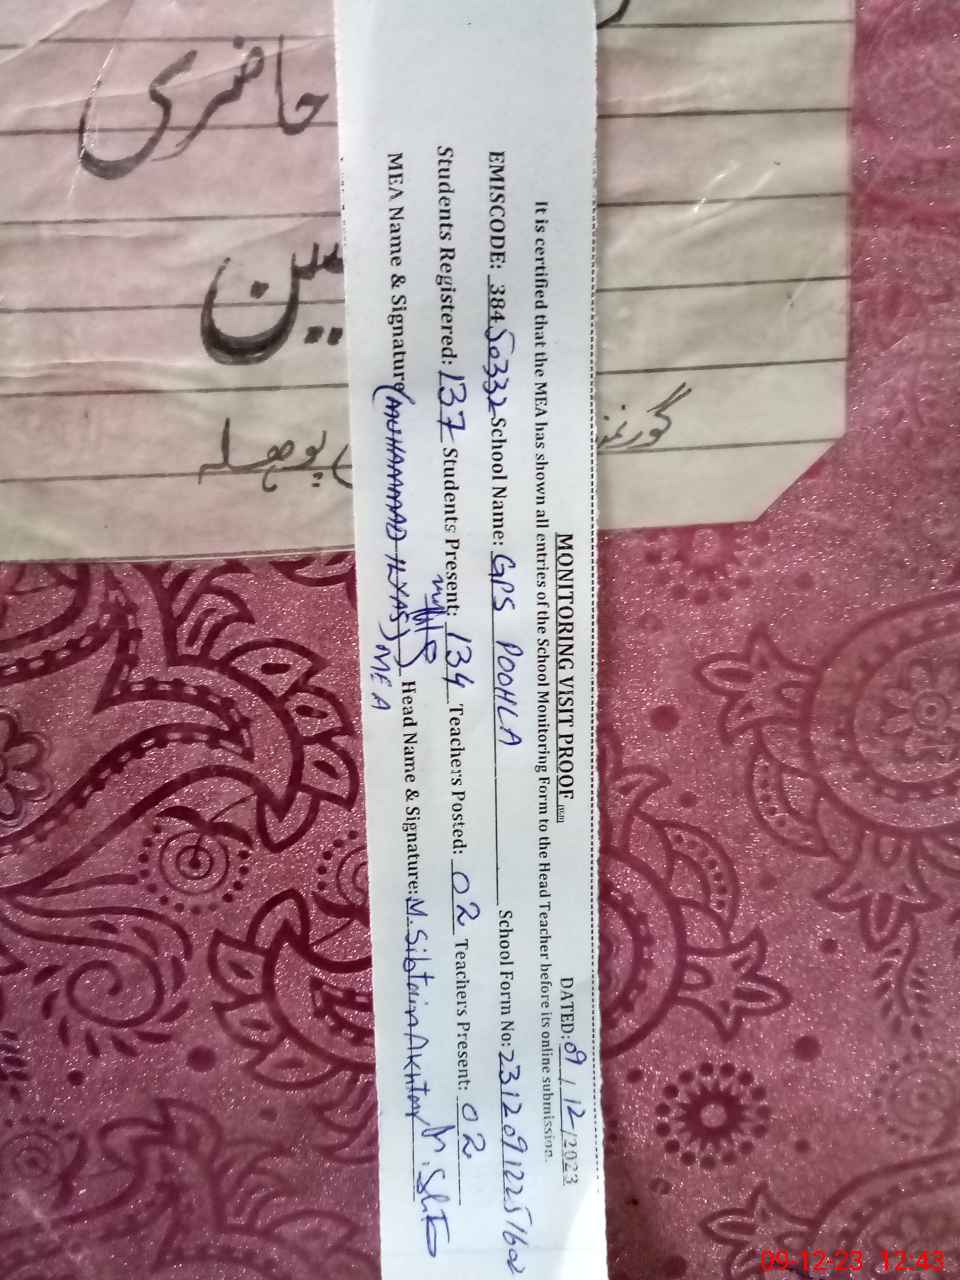 حاضری
گورنمنٹ
پوھلہ
MONITORING VISIT PROOF
DATED: 09 / 12 / 2023
It is certified that the MEA has shown all entries of the School Monitoring Form to the Head Teacher before its online submission.
EMISCODE: 38450332 School Name: GPS POOHLA School Form No: 23120912251602
Students Registered: 137 Students Present: 134 Teachers Posted: 02 Teachers Present: 02
MEA Name & Signature (MUHAMMAD ILYAS) MEA Head Name & Signature: M. Sibtain Akhtar
09-12-23 12:43